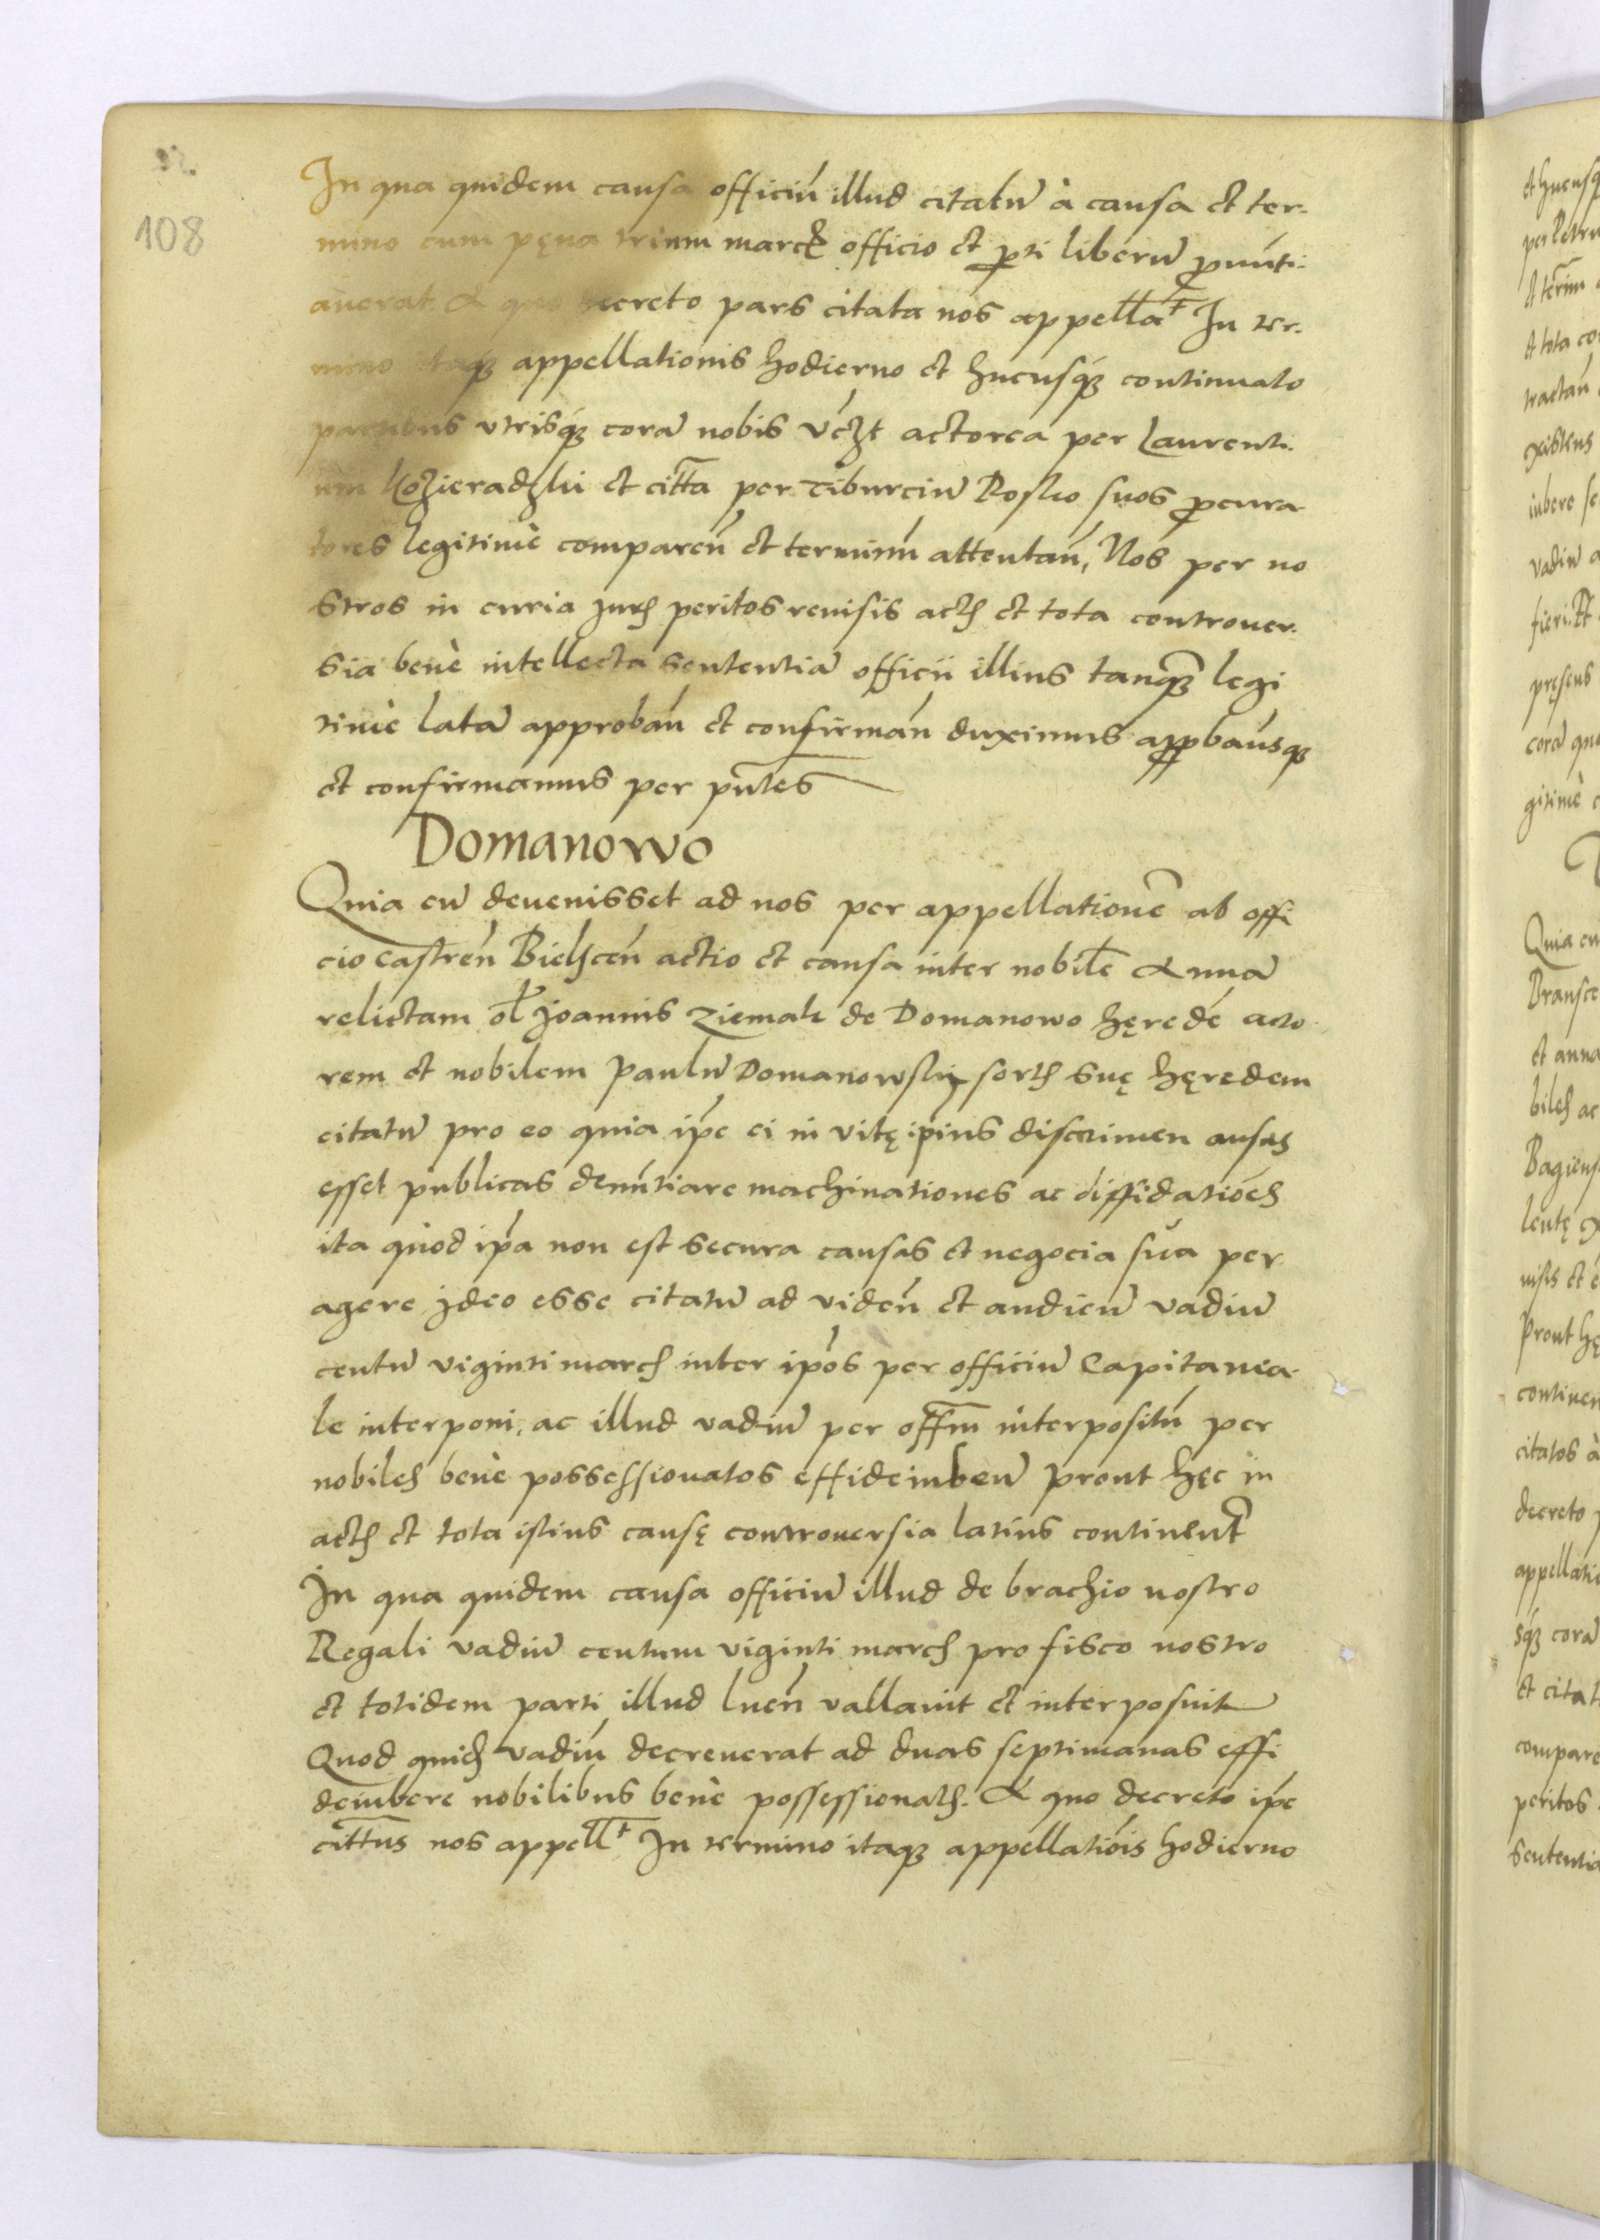 108
In qua quidem causa officiū illud citatū à causa et ter-
mino cum pęna trium marcɸ officio et pti liberū pnūti-
auerat A quo decreto pars citata nos appellat In ter-
mino itaqꝫ appellationis hodierno et hucusqꝫ continuato
partibus vtrisqꝫ corā nobis vczt actorea per Laurenti-
um Kozieradzki et cittā per Tiburciū Rosko suos pcura
tores legitimè comparēn et terminū attentān, Nos per no
stros in curia juris peritos reuisis actis et tota controuer-
sia benè intellecta sententiā officii illius tanqꝫ legi
timè latā approbān et confirmān duximus appbāusqꝫ
et confirmamus per pntes
Domanowo
Quia cū deuenisset ad nos per appellationē ab offi
cio castreń Bielscen actio et causa inter nobilē Annā
relictam ol Joannis Ziemak de Domanowo hęredē acto
rem et nobilem Paulū Domanowski sortis suę hęredem
citatū pro eo quia ipē ei in vitę ipius discrimen ausus
esset publicas denūtiare machinationes ac diffidatiōes
ita quòd ipa non est secura causas et negocia sua per
agere jdeo esse citatū ad videń et audień vadiū
centū viginti marcis inter ipōs per officiū Capitanea-
le interponi, ac illud vadiū per offm interpositū per
nobiles benè possessionatos effideiubeń prout hęc in
actis et tota istius causę controuersia latius continent
In qua quidem causa officiū illud de brachio nostro
Regali vadiū centum viginti marcis pro fisco nostro
et totidem parti illud lueń vallauit et interposuit
Quod quidē vadiū decreuerat ad duas septimanas effi
deiubere nobilibus benè possessionatis. A quo decreto ipē
cittus nos appellt In termino itaqꝫ appellatiōis hodierno